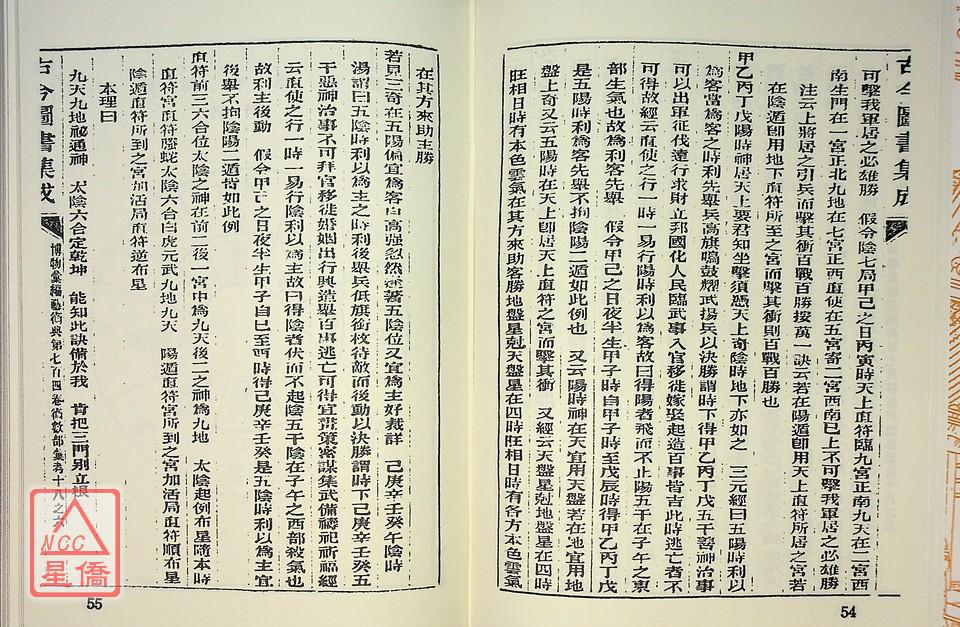 古今圖書集成
可擊我軍居之必雄勝　假令陰七局甲己之日丙寅時天上直符臨九宮正南九天在二宮西
南生門在一宮正北九地在七宮正西直使在五宮寄二宮西南已上不可擊我軍居之必雄勝
注云上將居之引兵而擊其衝百戰百勝按萬一訣云若在陽遁卽用天上直符所居之宮若
在陰遁卽用地下直符所至之宮而擊其衝則百戰百勝也
甲乙丙丁戊陽時神居天上要君知坐擊須憑天上奇陰時地下亦如之　三元經曰五陽時利以
爲客當爲客之時利先舉兵高旗鳴鼓耀武揚兵以決勝謂時下得甲乙丙丁戊五干善神治事
可以出軍征伐遠行求財立邦國化人民臨武事入官移徙嫁娶起造百事皆吉此時逃亡者不
可得故經云直使之行一時一易行陽時利以爲客故曰得陽者飛而不止陽五干在子午之東
部生氣也故爲利客先舉　假令甲己之日夜半生甲子時自甲子時至戊辰時得甲乙丙丁戊
是五陽時利爲客先舉不拘陰陽二遁如此例也　又云陽時神在天宜用天盤若在地宜用地
盤上奇又云五陽時在天上卽居天上直符之宮而擊其衝　又經云天盤星尅地盤星在四時
旺相日時有本色雲氣在其方來助客勝地盤星尅天盤星在四時旺相日時有各方本色雲氣
54
在其方來助主勝
若見三奇在五陽偏宜爲客自高强忽然逢著五陰位又宜爲主好裁詳　己庚辛壬癸午陰時
湯謂曰五陰時利以爲主之時利後舉兵低旗銜枚待敵而後動以決勝謂時下己庚辛壬癸五
干惡神治事不可拜官移徙婚姻出行興造舉百事逃亡可得宜責策密謀集武備禱祀祈福經
云直使之行一時一易行陰利以爲主故曰得陰者伏而不起陰五干在子午之西部殺氣也
故利主後動　假令甲己之日夜半生甲子自己至酉時得己庚辛壬癸是五陰時利以爲主宜
後舉不拘陰陽二遁皆如此例
直符前三六合位太陰之神在前二後一宮中爲九天後二之神爲九地　太陰起例布星隨本時
直符宮直符螣蛇太陰六合白虎元武九地九天　陽遁直符宮所到之宮加活局直符順布星
陰遁直符所到之宮加活局直符逆布星
本理曰
九天九地祕通神　太陰六合定乾坤　能知此訣備於我　肯把三門別立根
古今圖書集成
博物彙編藝術典第七百四卷術數部彙考十八之六
55
NCC
星僑